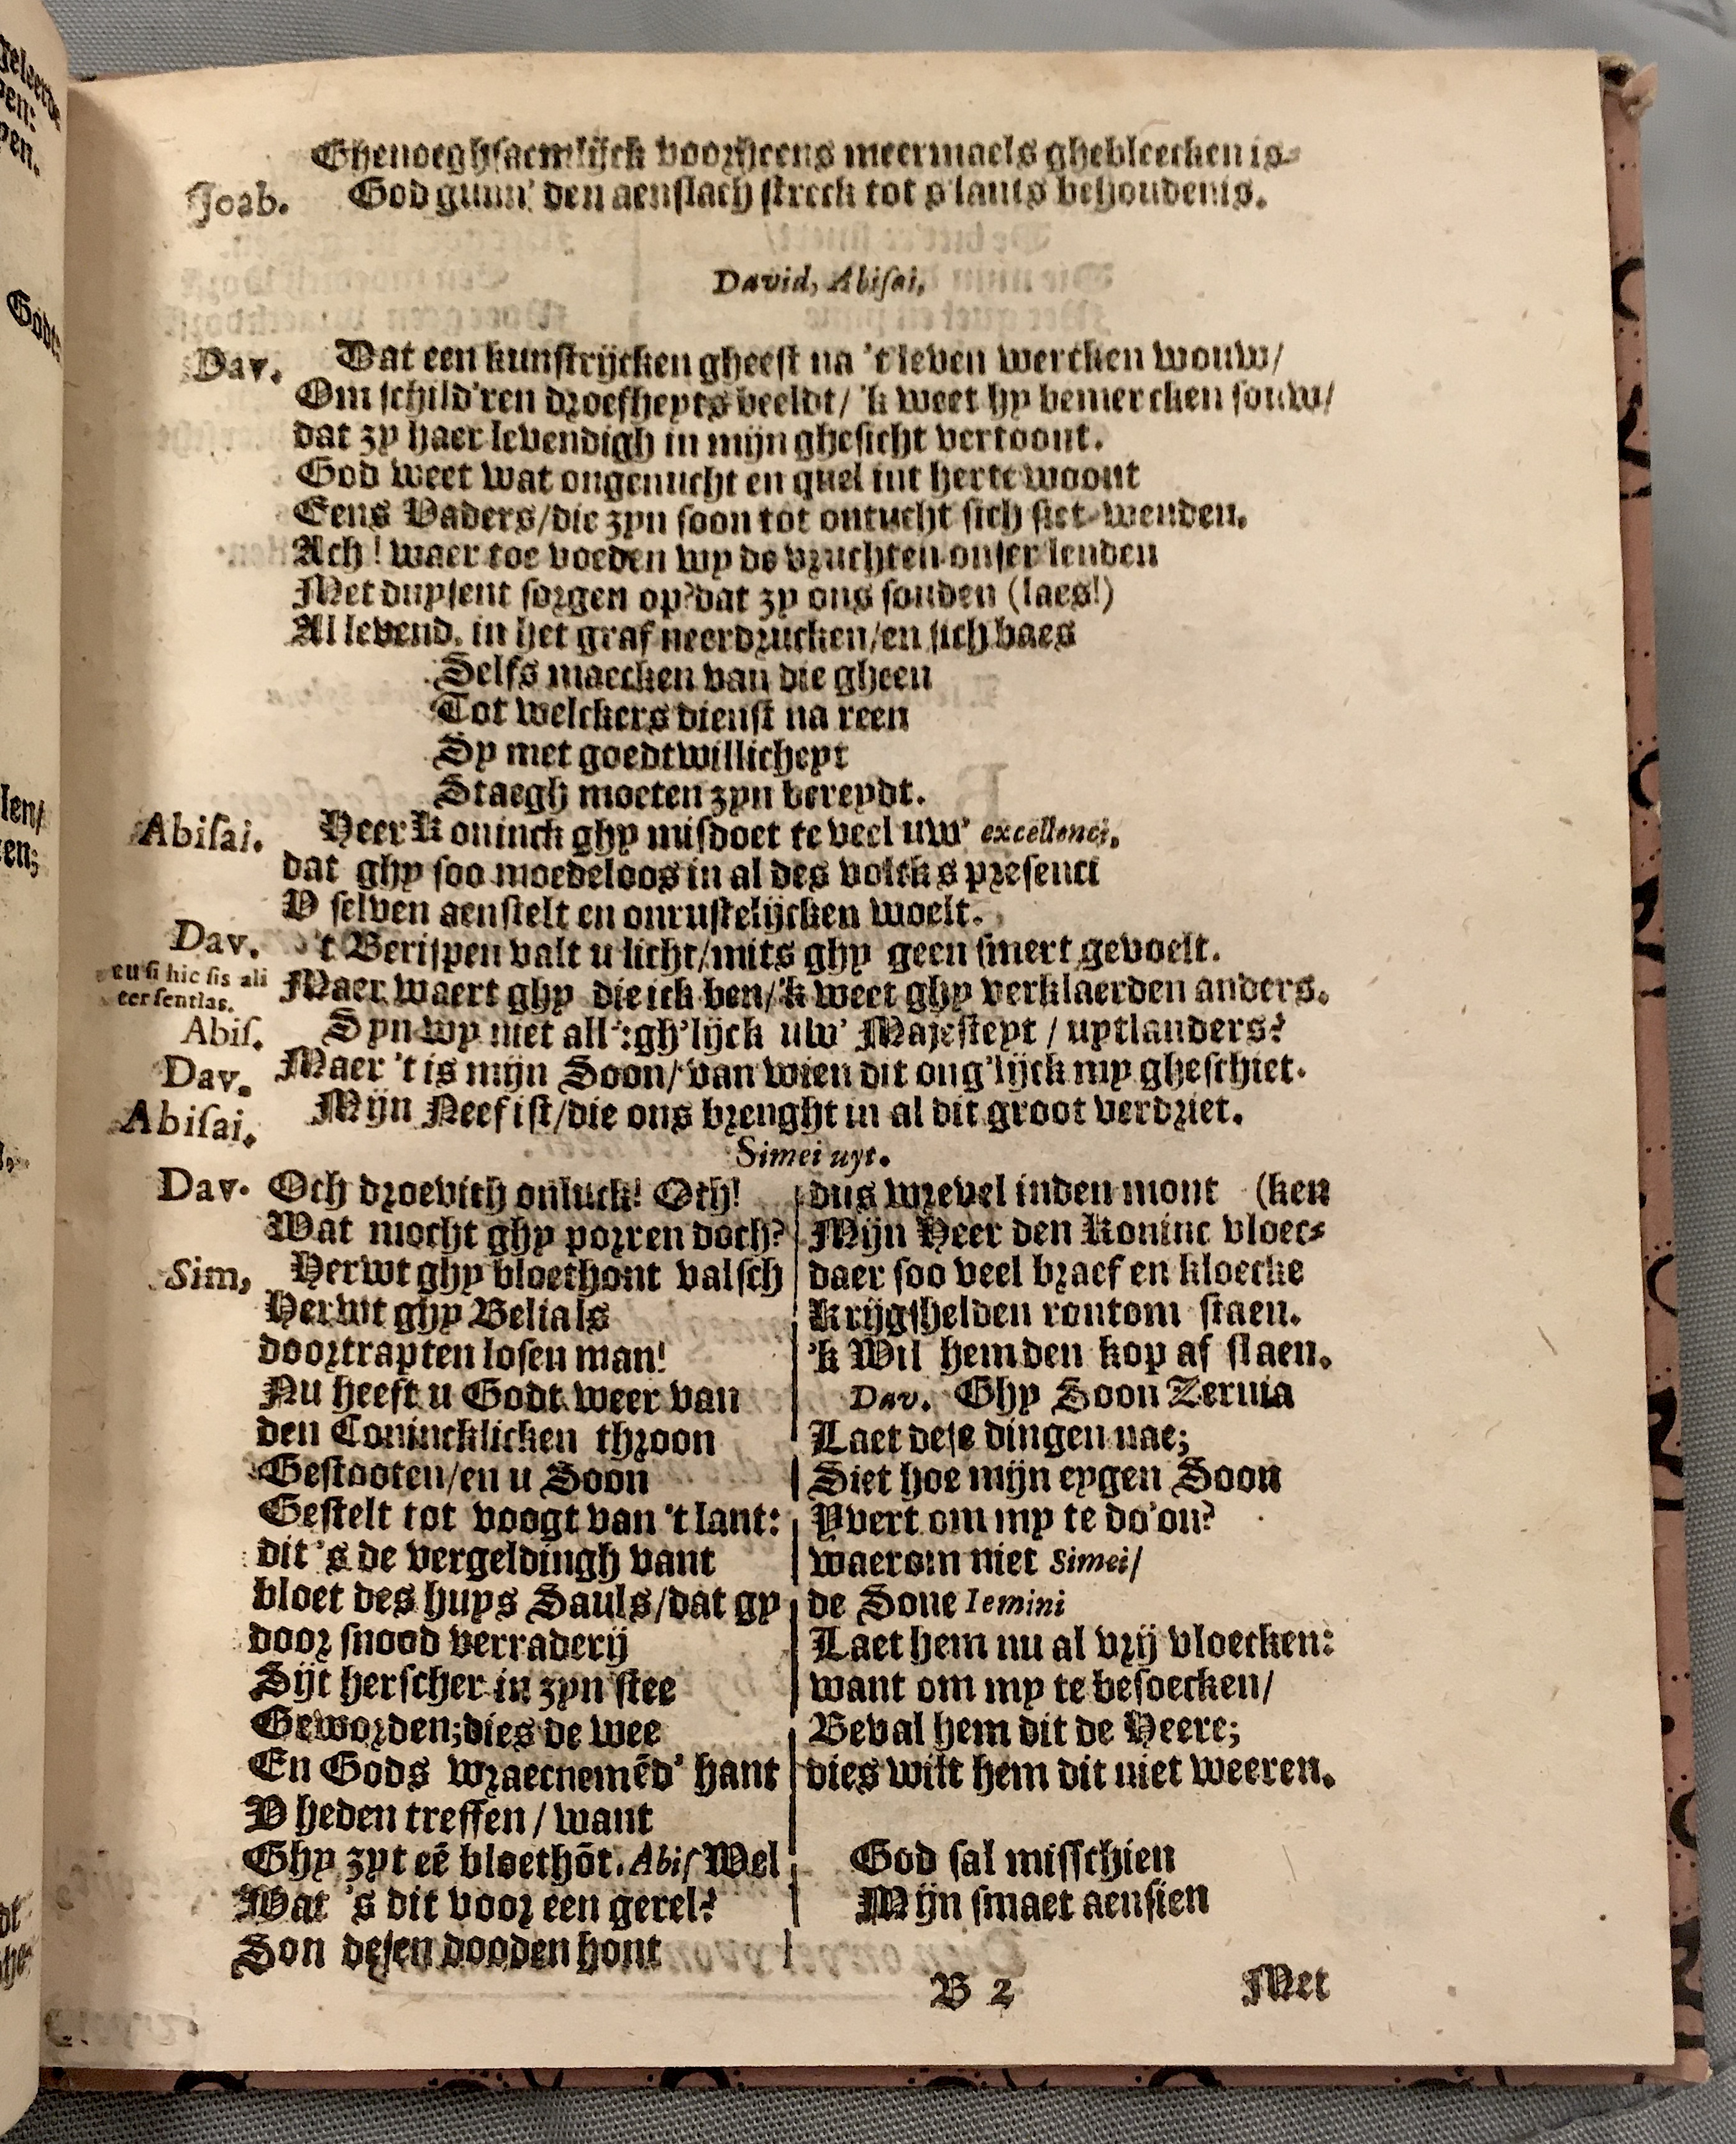 Ghenoeghsaemlijck voorheens meermaels ghebleecken is.
Joab. God gunn' den aenslach streck tot s'lants behoudenis.
David, Abisai,
Dav. Dat een kunstrijcken gheest na 't leven wercken wouw/
Om schild'ren droefheyts beeldt/ 'k weet hy bemercken souw/
dat zy haer levendigh in mijn ghesicht vertoont.
God weet wat ongenucht en quel int herte woont
Eens Vaders/die zyn soon tot ontucht sich siet wenden.
Ach! waer toe voeden wy de vruchten onser lenden
Met duysent sorgen op? dat zy ons souden (laes!)
Al levend. in het graf neerdrucken/en sich baes
Selfs maecken van die gheen
Tot welckers dienst na reen
Sy met goedtwillicheyt
Staegh moeten zyn bereydt.
Abisai. Heer Koninck ghy misdoet te veel uw' excellenci,
dat ghy soo moedeloos in al des volcks presenci
V selven aenstelt en onrustelijcken woelt.
Dav. 't Berispen valt u licht/mits ghy geen smert gevoelt.
eu si hic sis ali
ter sentias.
Maer waert ghy die ick ben/'k weet ghy verklaerden anders.
Abis. Syn wy niet all' gh'lijck uw' Majesteyt / uytlanders?
Dav. Maer 't is mijn Soon/ van wien dit ong'lijck my gheschiet.
Abisai. Mijn Neef ist/die ons brenght in al dit groot verdriet.
Simei uyt.
Dav. Och droevich onluck! Och!
Wat mocht ghy porren doch?
Sim, Herwt ghy bloethont valsch
Herwt ghy Belials
doortrapten losen man!
Nu heeft u Godt weer van
den Conincklicken throon
Gestooten/en u Soon
Gestelt tot voogt van 't lant:
dit 's de vergeldingh vant
bloet des huys Sauls/dat gy
door snood verraderij
Sijt herscher in zyn stee
Geworden;dies de wee
En Gods wraecnemēd' hant
V heden treffen / want
Ghy zyt eē bloethōt. Abis Wel
Wat 's dit voor een gerel?
Son desen dooden hont
dus wrevel inden mont (ken
Mijn Heer den Koninc vloec-
daer soo veel braef en kloecke
krijgshelden rontom staen.
'k Wil hem den kop af slaen.
Dav. Ghy Soon Zeruia
Laet dese dingen nae;
Siet hoe mijn eygen Soon
Yvert om my te do'on?
waerom niet Simei/
de Sone Iemini
Laet hem nu al vrij vloecken:
want om my te besoecken/
Beval hem dit de Heere;
dies wilt hem dit niet weeren.
God sal misschien
Mijn smaet aensien
B 2 Met